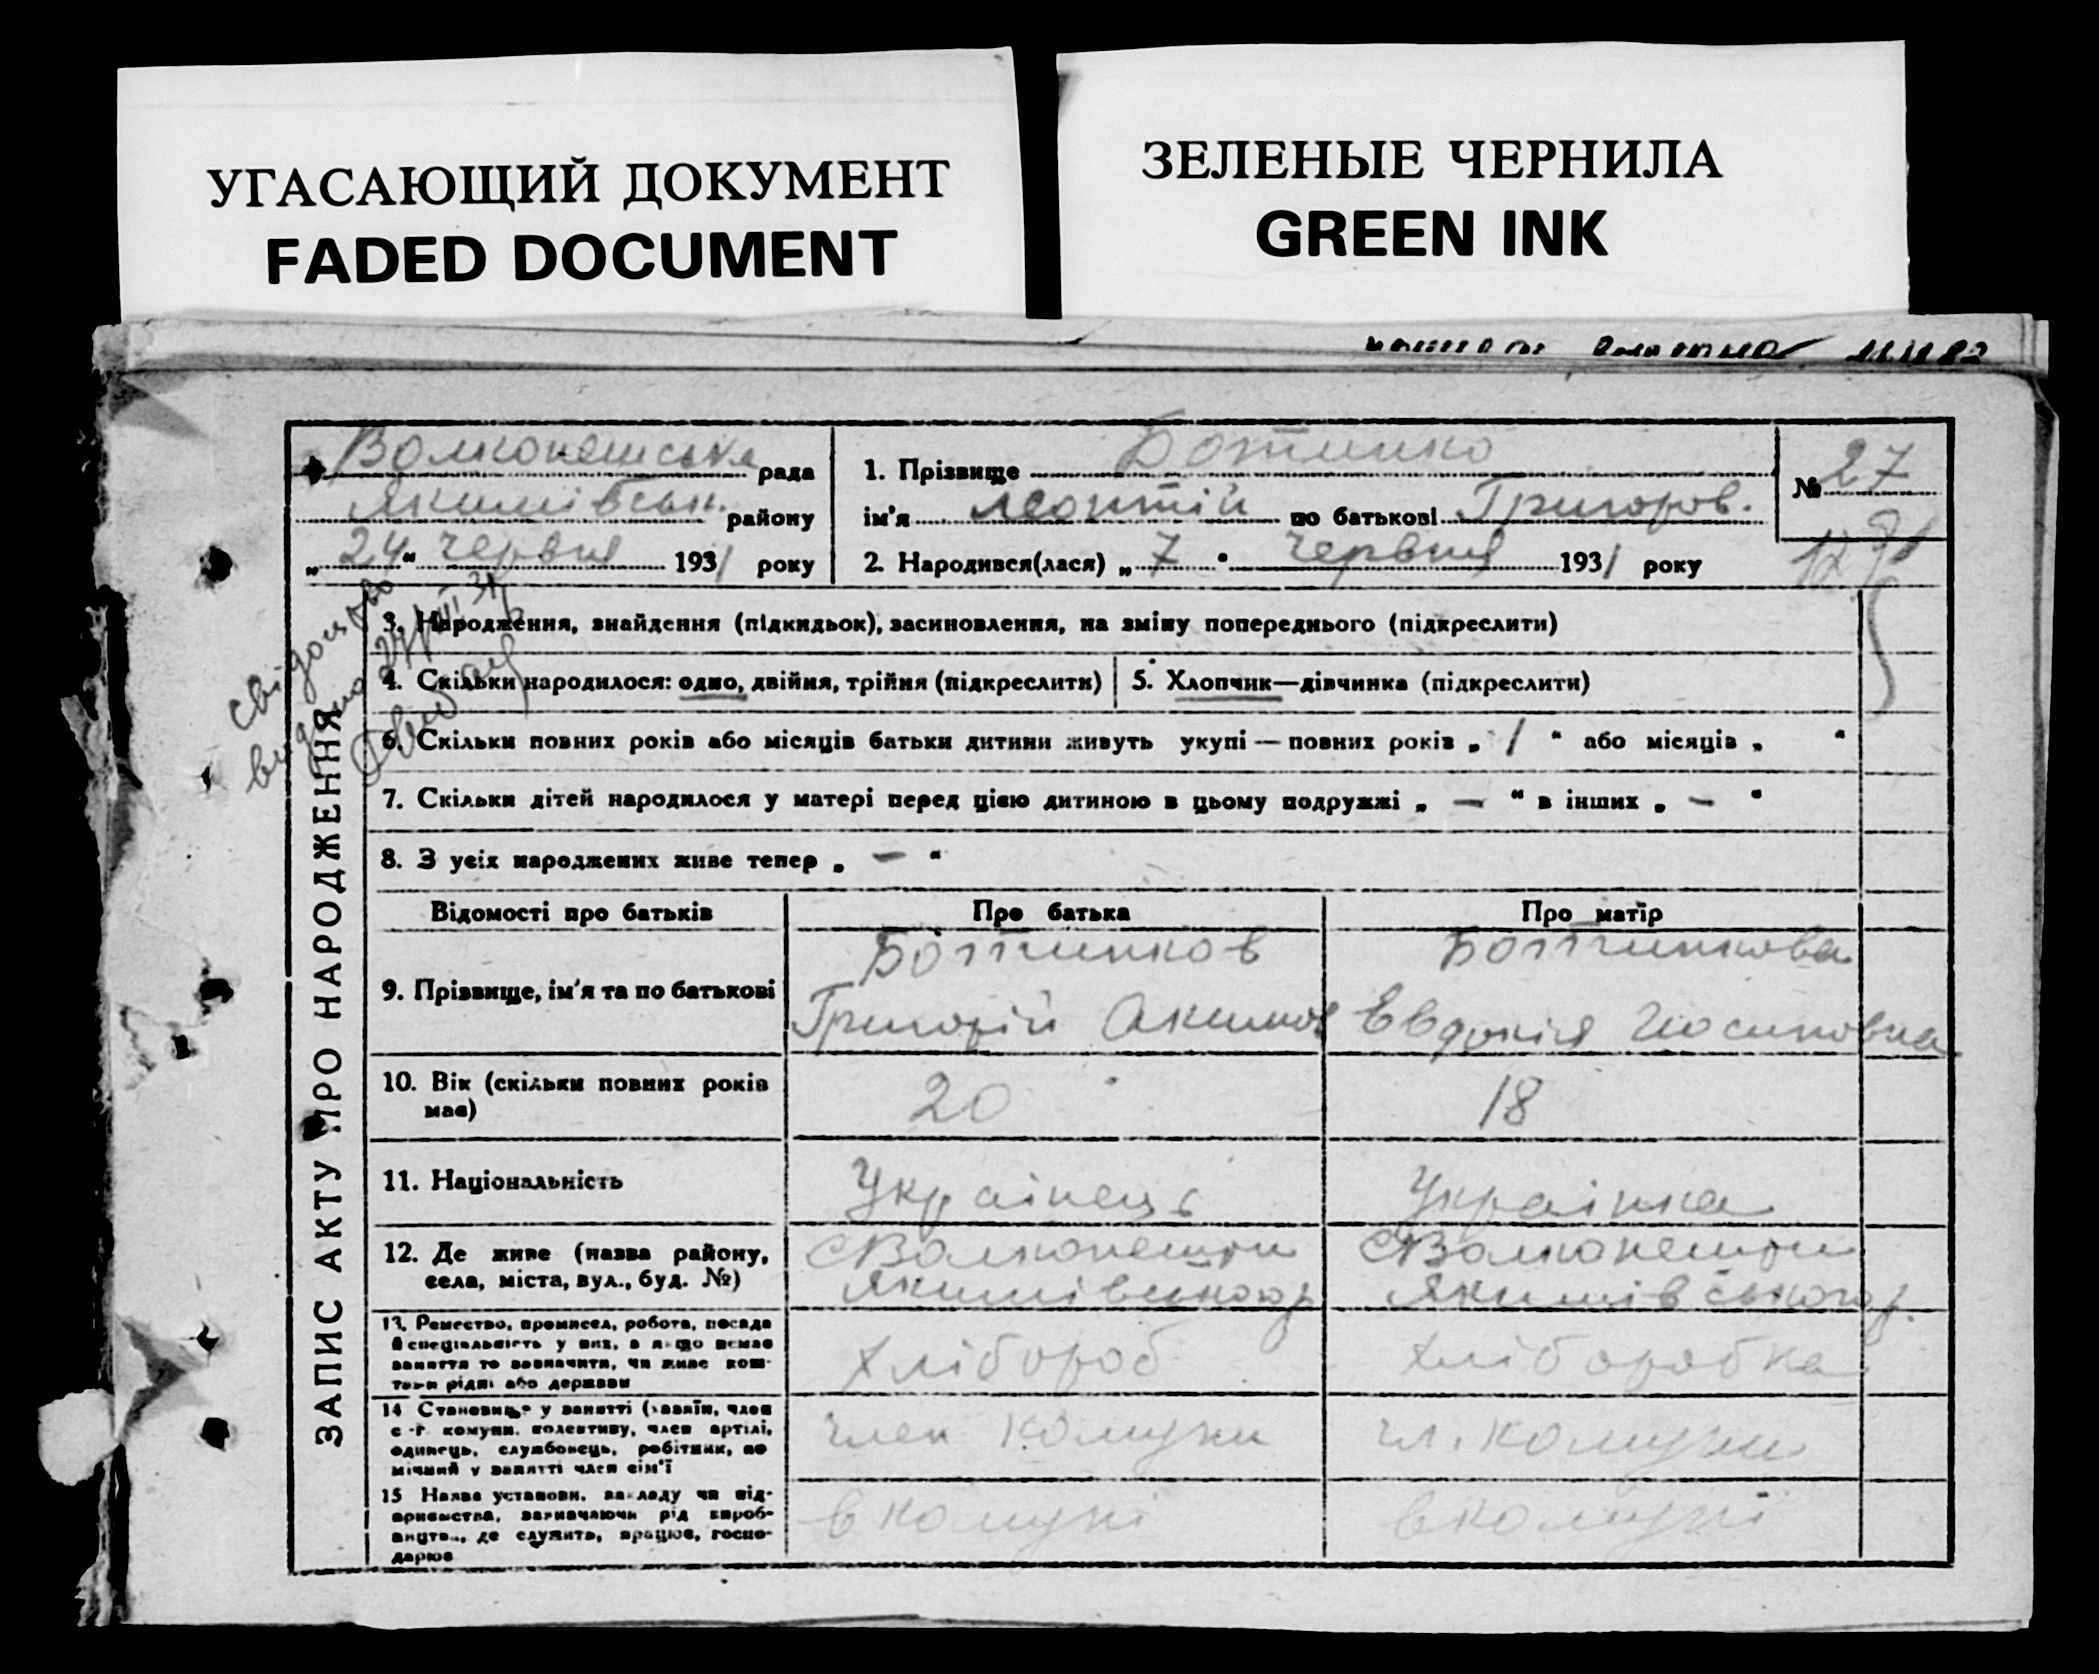 УГАСАЮЩИЙ ДОКУМЕНТ
FADED DOCUMENT
ЗЕЛЕНЫЕ ЧЕРНИЛА
GREEN INK
рада
Якимівськ. району
„24“ червня 1931 року
1. Прізвище Ботинко
ім'я Леонтій по батькові Григоров.
2. Народився(лася) „7“ червня 1931 року
№ 27
Свідоцтво
видано
ЗАПИС АКТУ ПРО НАРОДЖЕННЯ
3. Народження, знайдення (підкидьок), засиновлення, на зміну попереднього (підкреслити)
4. Скільки народилося: одно, двійня, трійня (підкреслити)
5. Хлопчик—дівчинка (підкреслити)
6. Скільки повних років або місяців батьки дитини живуть укупі — повних років „ 1 “ або місяців „ “
7. Скільки дітей народилося у матері перед цією дитиною в цьому подружжі „ — “ в інших „ — “
8. З усіх народжених живе тепер „ — “
Відомості про батьків
Про батька
Про матір
9. Прізвище, ім'я та по батькові
Ботинков
Григорій Акимов
Ботинкова
Евдокія Иосиповна
10. Вік (скільки повних років
має)
20
18
11. Національність
Украінець
Украінка
12. Де живе (назва району,
села, міста, вул., буд. №)
Якимівського р
Якимівського р.
13. Ремество, промисел, робота, посада
й спеціяльність у них, а якщо немає
заняття то зазначити, чи живе кош-
тами рідні або держави
Хлібороб
Хлібробка
14 Становище у занятті (хазяїн, член
с.-г. комуни, колективу, член артілі,
одинець, службовець, робітник, по
мічний у занятті член сім'ї
член комуни
чл. комуни
15 Назва установи, закладу чи під-
приємства, зазначаючи рід вироб-
ництва, де служить, працює, госпо-
дарює
в комуні
в комуні